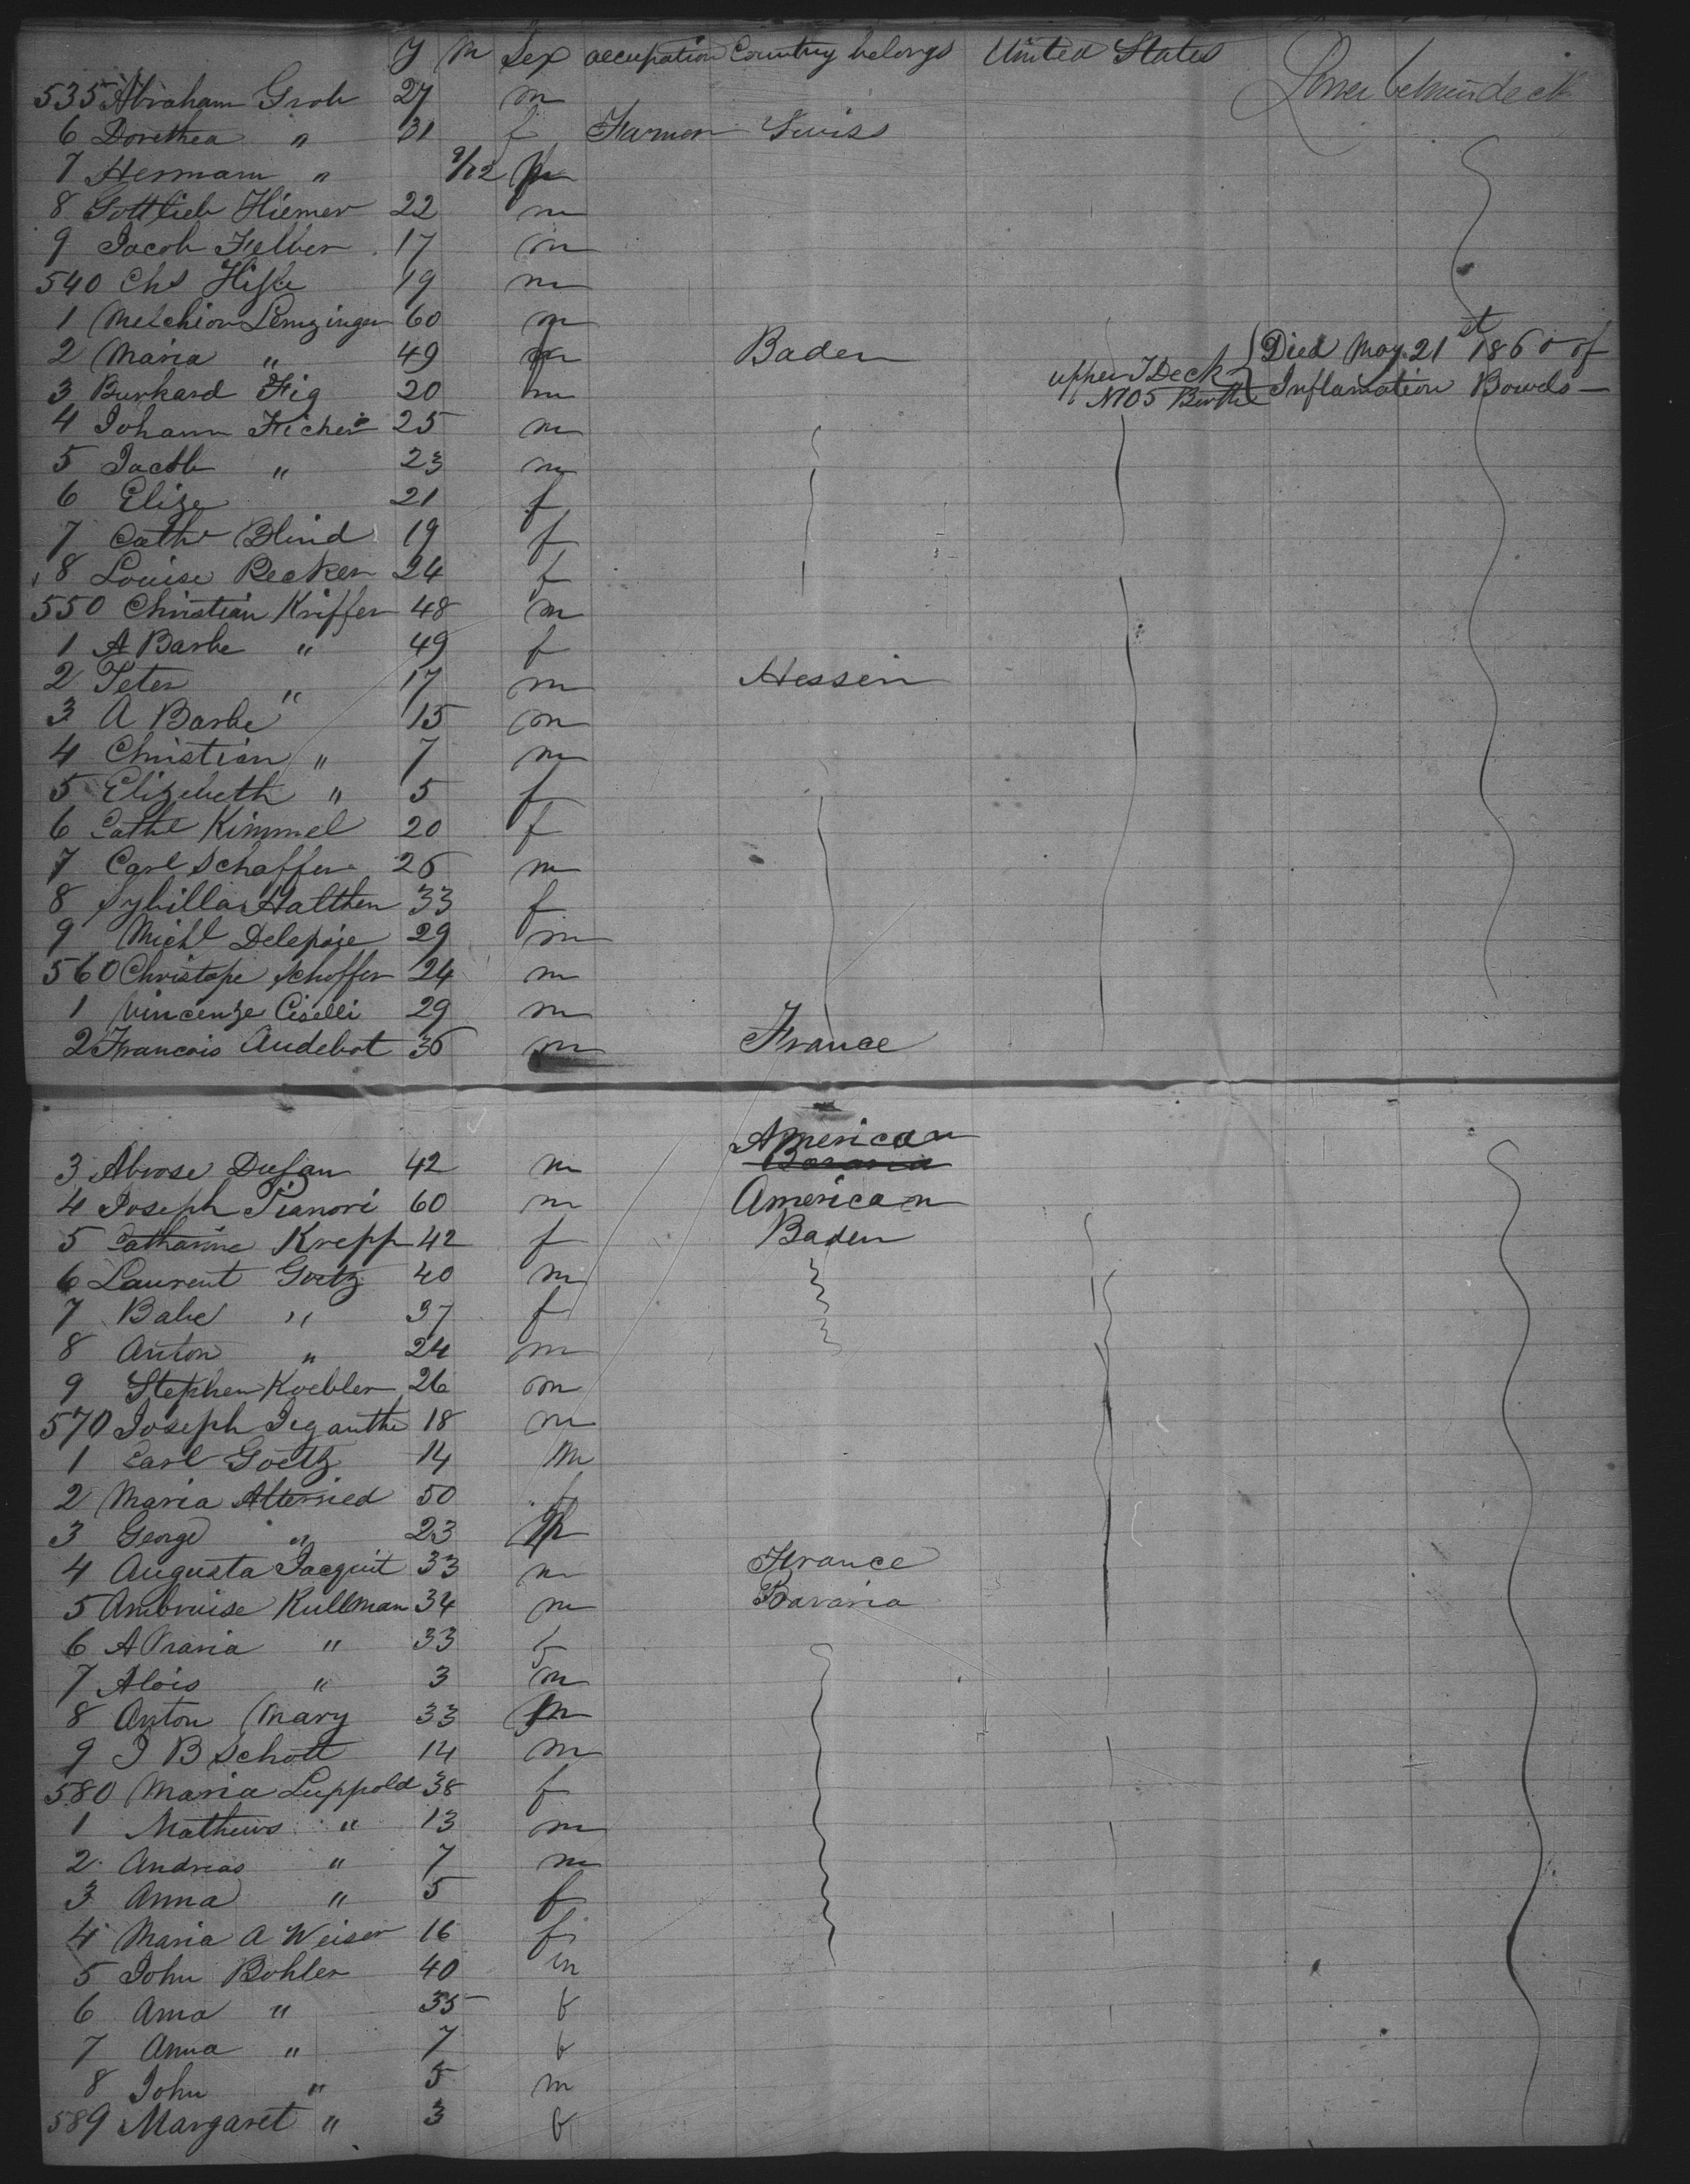 Y M Sex occupation Country belongs United States
535 Abraham Grob 27 m Lower between deck
6 Dorethea " 31 f Farmer Swiss
7 Hermann " 9/12 m
8 Gottlieb Hiemer 22 m
9 Jacob Felber 17 m
540 Chs 19 m
1 Melchior Lenzinger 60 m
2 Maria " 49 Baden upper Deck No 5 Berth Died May 21st 1860 of
3 Burkard Fig 20 m Inflamation Bowels
4 Johann Ficher 25 m
5 Jacob " 23 m
6 Elize 21 f
7 Cathe Blind 19 f
8 Louise Becker 24 f
550 Christian Kriffer 48 m
1 A Barbe " 49 f
2 Peter " 17 m Hessein
3 A Barbe " 15 m
4 Christian " 7 m
5 Elizebeth " 5 f
6 Cathe Kimmel 20 f
7 Carl Schaffer 26 m
8 Sybilla Halthen 33 f
9 Michl 29 m
560 Christope Schoffer 24 m
1 Vincenze Ciselli 29 m
2 Francois Audebot 36 m France
American
3 Abrose Dufau 42 m Bavaria
4 Joseph Pianori 60 m American
5 Catharine Krepp 42 f Baden
6 Laurent Goetz 40 m
7 Babe " 37 f
8 Anton " 24 m
9 Stephen Koebler 26 m
570 Joseph 18 m
1 Carl Goetz 14 m
2 Maria Alteried 50 f
3 George " 23 m
4 Augusta Jacquit 33 m France
5 Ambroise Kullman 34 m Bavaria
6 A Maria " 33 f
7 Alois " 3 m
8 Anton Mary 33 m
9 J B Schott 14 m
580 Maria Luppold 38 f
1 Mathews " 13 m
2 Andreas " 7 m
3 Anna " 5 f
4 Maria A Weiser 16 f
5 John Bohler 40 m
6 Anna " 35 f
7 Anna " 7 f
8 John " 5 m
589 Margaret " 3 f